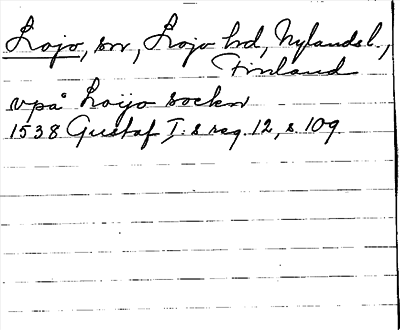 Lojo, sn, Lojo hd, Nylands l.,
Finland
vpå Loijo sockn
1538 Gustaf I:s reg. 12, s. 109